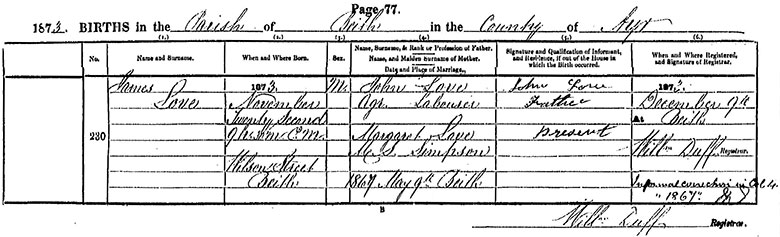 Page 77.
1873. BIRTHS in the Parish of Beith in the County of Ayr
(1.) (2.) (3.) (4.) (5.) (6.)
No. Name and Surname. When and Where Born. Sex. Name, Surname, & Rank or Profession of Father. Name, and Maiden Surname of Mother. Date and Place of Marriage. Signature and Qualification of Informant, and Residence, if out of the House in which the Birth occurred. When and Where Registered, and Signature of Registrar.
James 1873. M. John Love John Love 1873.
Love November Agr. Labourer Father December 9th
Twenty Second Present At Beith
230 P.M. Margaret Love
M.S. Simpson Willm Duff Registrar.
Wilson Street
Beith 1867 May 9th Beith Informal correction in Col. 4.
" 1867"
B
Willm Duff Registrar.